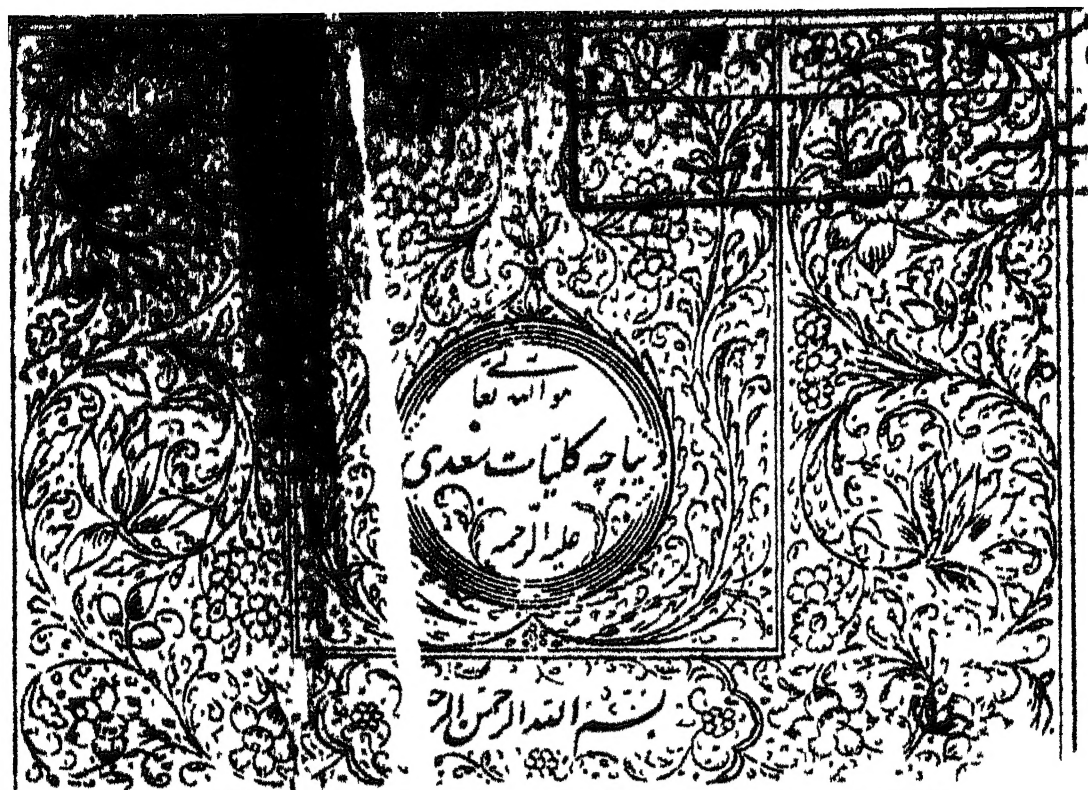 هو الله تعالى
دیباچه کلیات سعدی
علیه الرحمه
بسم الله الرحمن الرحیم